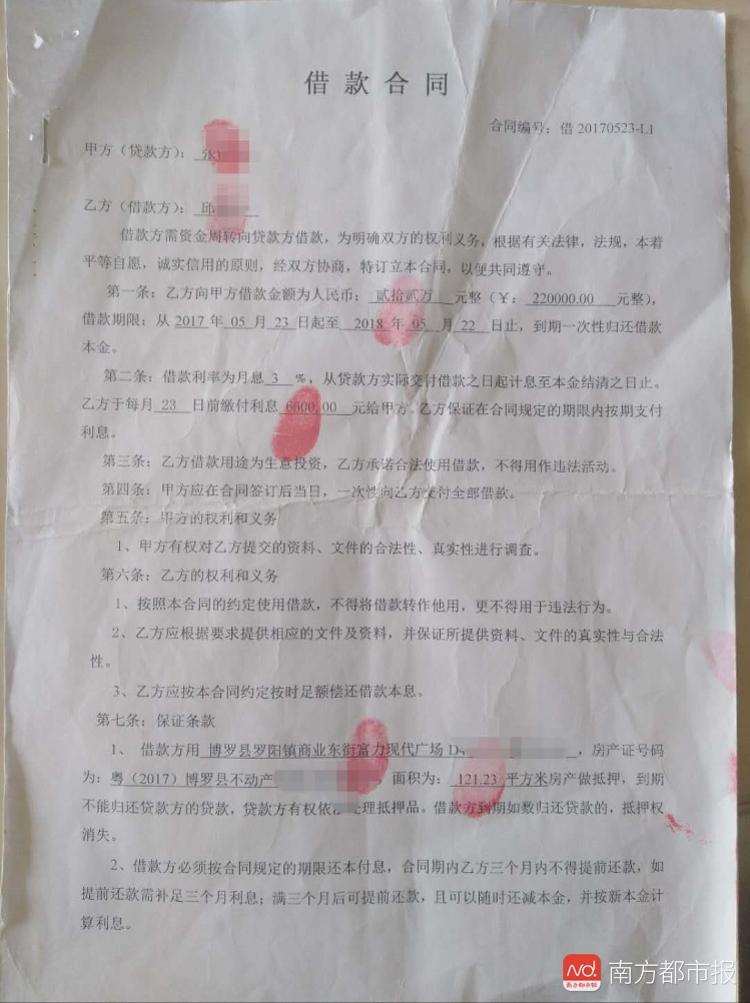 借款合同
合同编号：借20170523-L1
甲方（贷款方）：张
乙方（借款方）：邱
借款方需资金周转向贷款方借款，为明确双方的权利义务，根据有关法律，法规，本着
平等自愿，诚实信用的原则，经双方协商，特订立本合同，以便共同遵守。
第一条：乙方向甲方借款金额为人民币：贰拾贰万 元整（￥：220000.00 元整），
借款期限：从 2017 年 05 月 23 日起至 2018 年 05 月 22 日止，到期一次性归还借款
本金。
第二条：借款利率为月息 3 %，从贷款方实际交付借款之日起计息至本金结清之日止。
乙方于每月 23 日前缴付利息 6600.00 元给甲方。乙方保证在合同规定的期限内按期支付
利息。
第三条：乙方借款用途为生意投资，乙方承诺合法使用借款，不得用作违法活动。
第四条：甲方应在合同签订后当日，一次性向乙方交付全部借款。
第五条：甲方的权利和义务
1、甲方有权对乙方提交的资料、文件的合法性、真实性进行调查。
第六条：乙方的权利和义务
1、按照本合同的约定使用借款，不得将借款转作他用，更不得用于违法行为。
2、乙方应根据要求提供相应的文件及资料，并保证所提供资料、文件的真实性与合法
性。
3、乙方应按本合同约定按时足额偿还借款本息。
第七条：保证条款
1、 借款方用 博罗县罗阳镇商业东街富力现代广场 D ，房产证号码
为：粤（2017）博罗县不动产 面积为： 121.23 平方米房产做抵押，到期
不能归还贷款方的贷款，贷款方有权依 处理抵押品。借款方到期如数归还贷款的，抵押权
消失。
2、借款方必须按合同规定的期限还本付息，合同期内乙方三个月内不得提前还款，如
提前还款需补足三个月利息；满三个月后可提前还款，且可以随时还减本金，并按新本金计
算利息。
Nd.
南方都市报
南方都市报